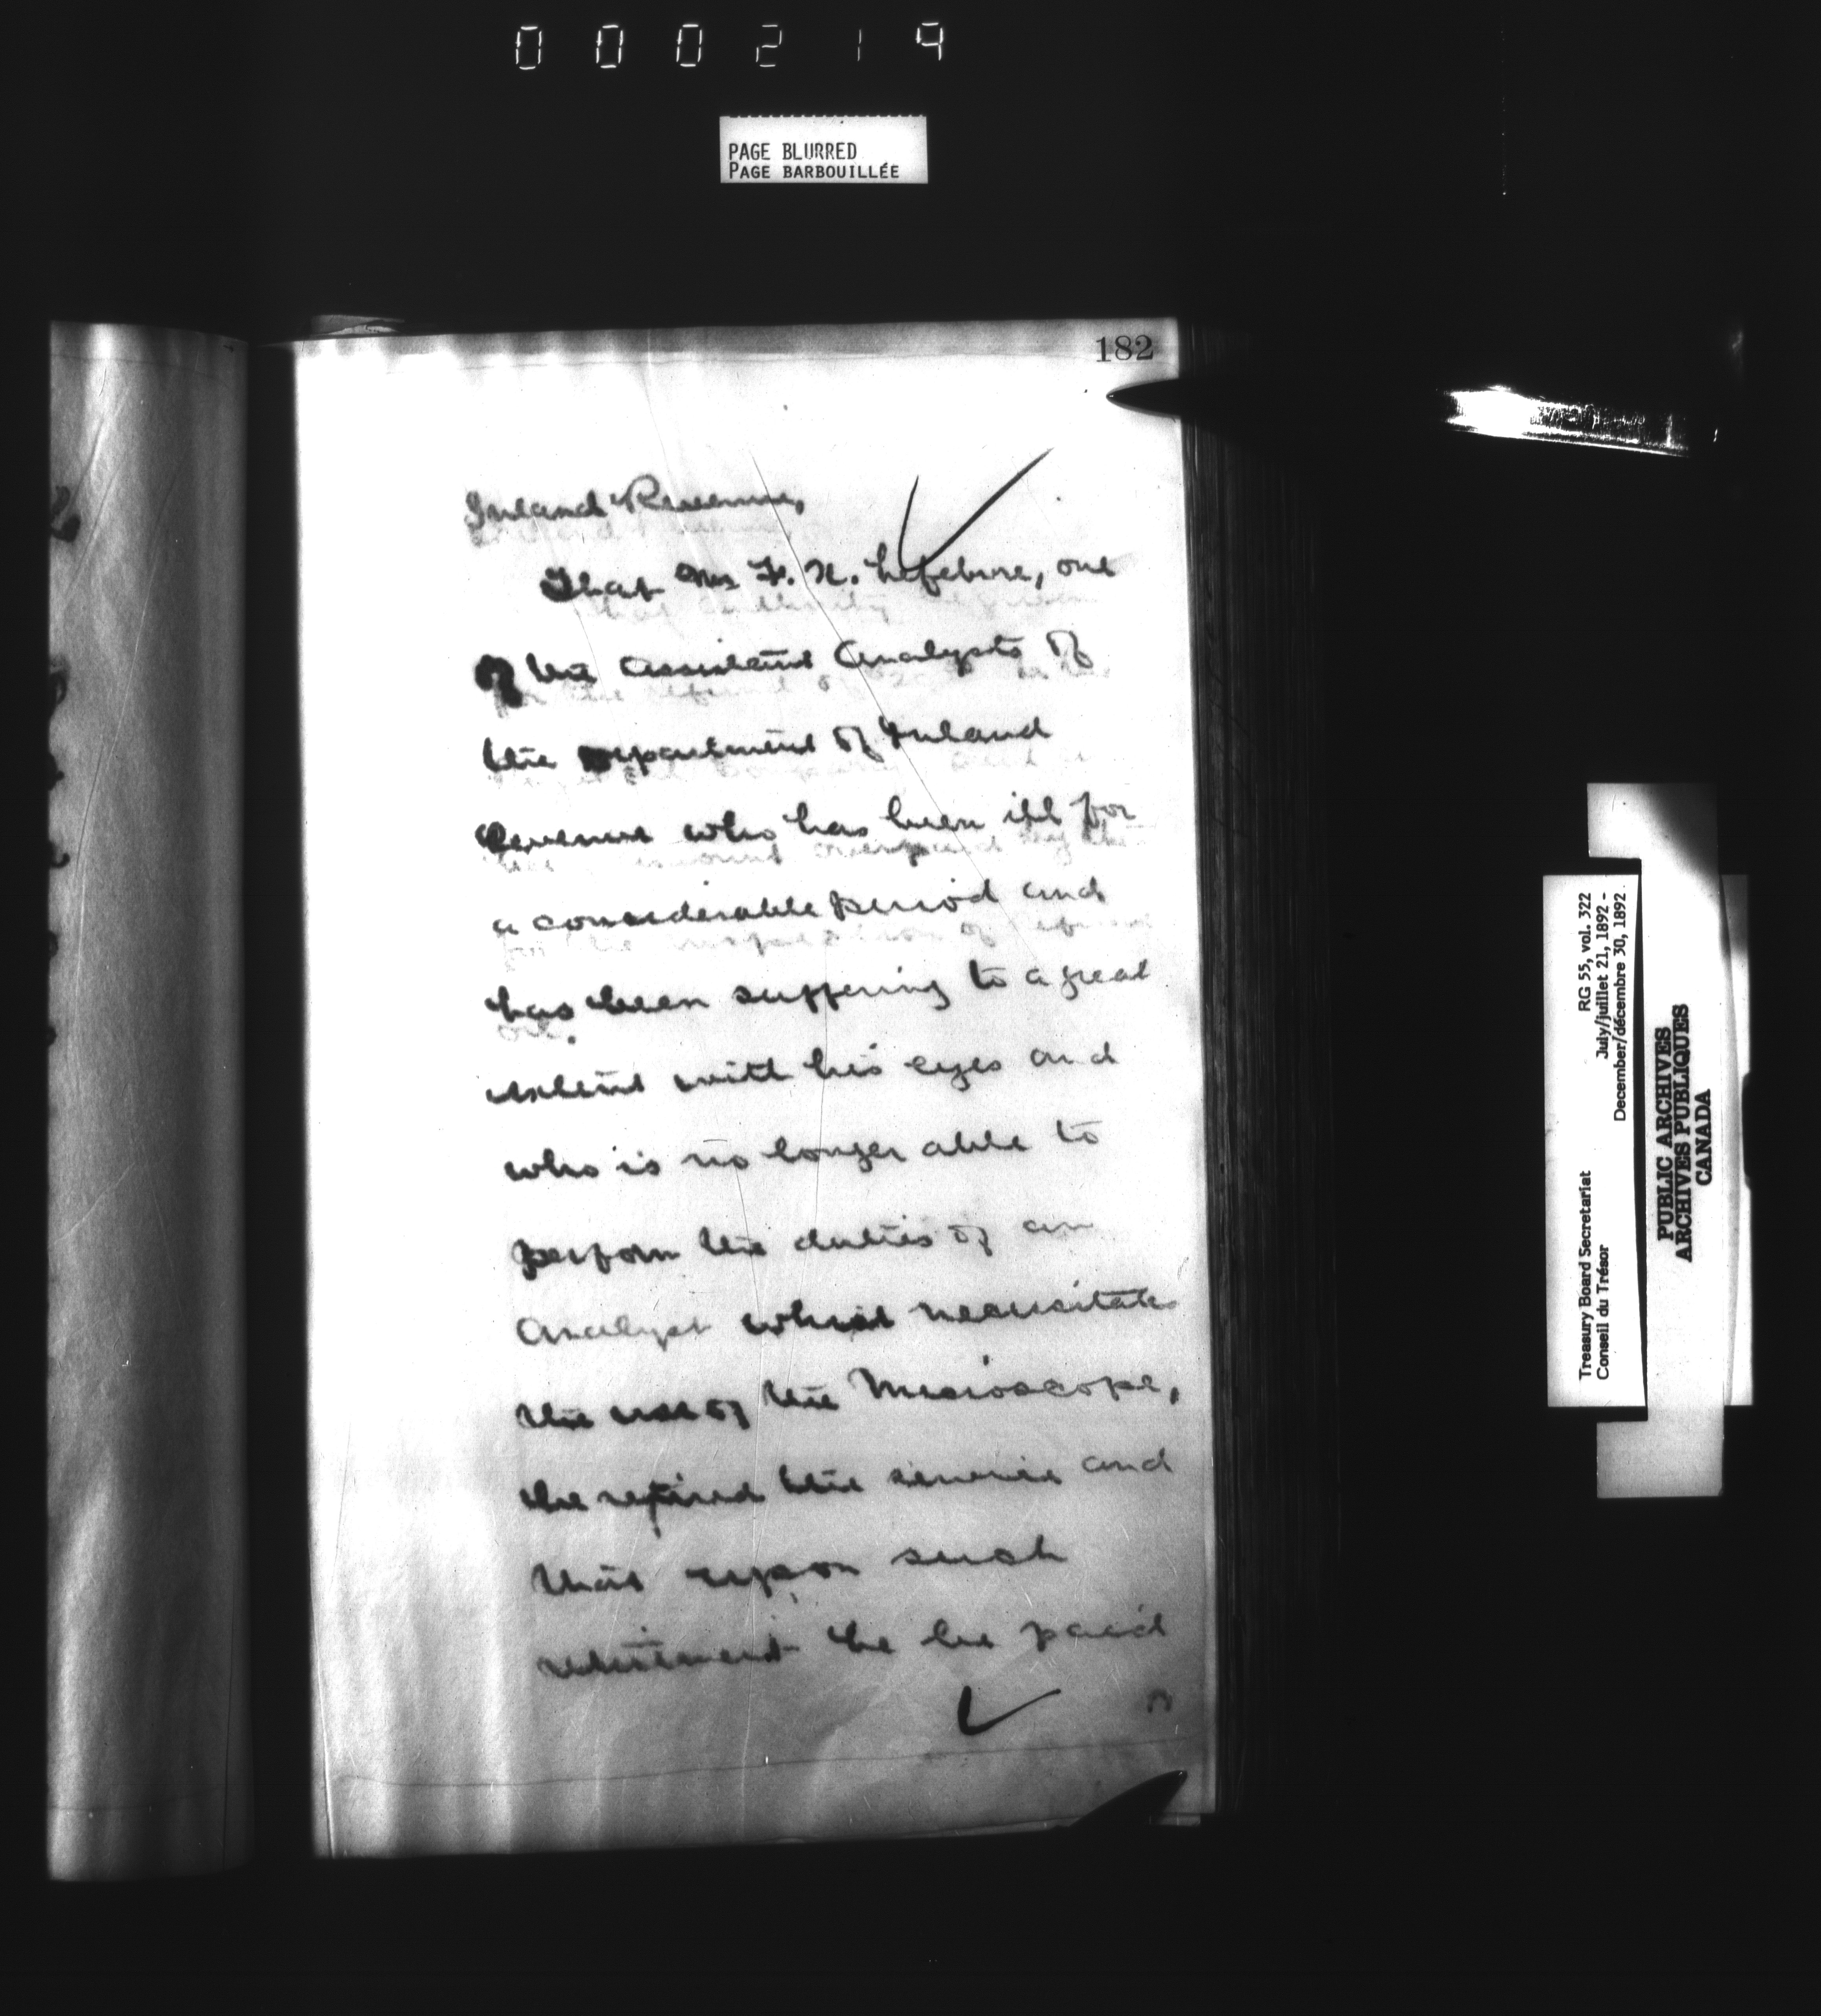 000219
PAGE BLURRED
PAGE BARBOUILLÉE
182
Inland Revenue,
That Mr F. X. Lefebvre, one
of the assistant Analysts of
the Department of Inland
Revenue who has been ill for
a considerable period and
has been suffering to a great
extent with his eyes and
who is no longer able to
perform the duties of an
Analyst which necessitates
the use of the Microscope,
be retired the service and
that upon such
retirement he be paid
Treasury Board Secretariat RG 55, vol. 322
Conseil du Trésor July/juillet 21, 1892 -
December/décembre 30, 1892
PUBLIC ARCHIVES
ARCHIVES PUBLIQUES
CANADA